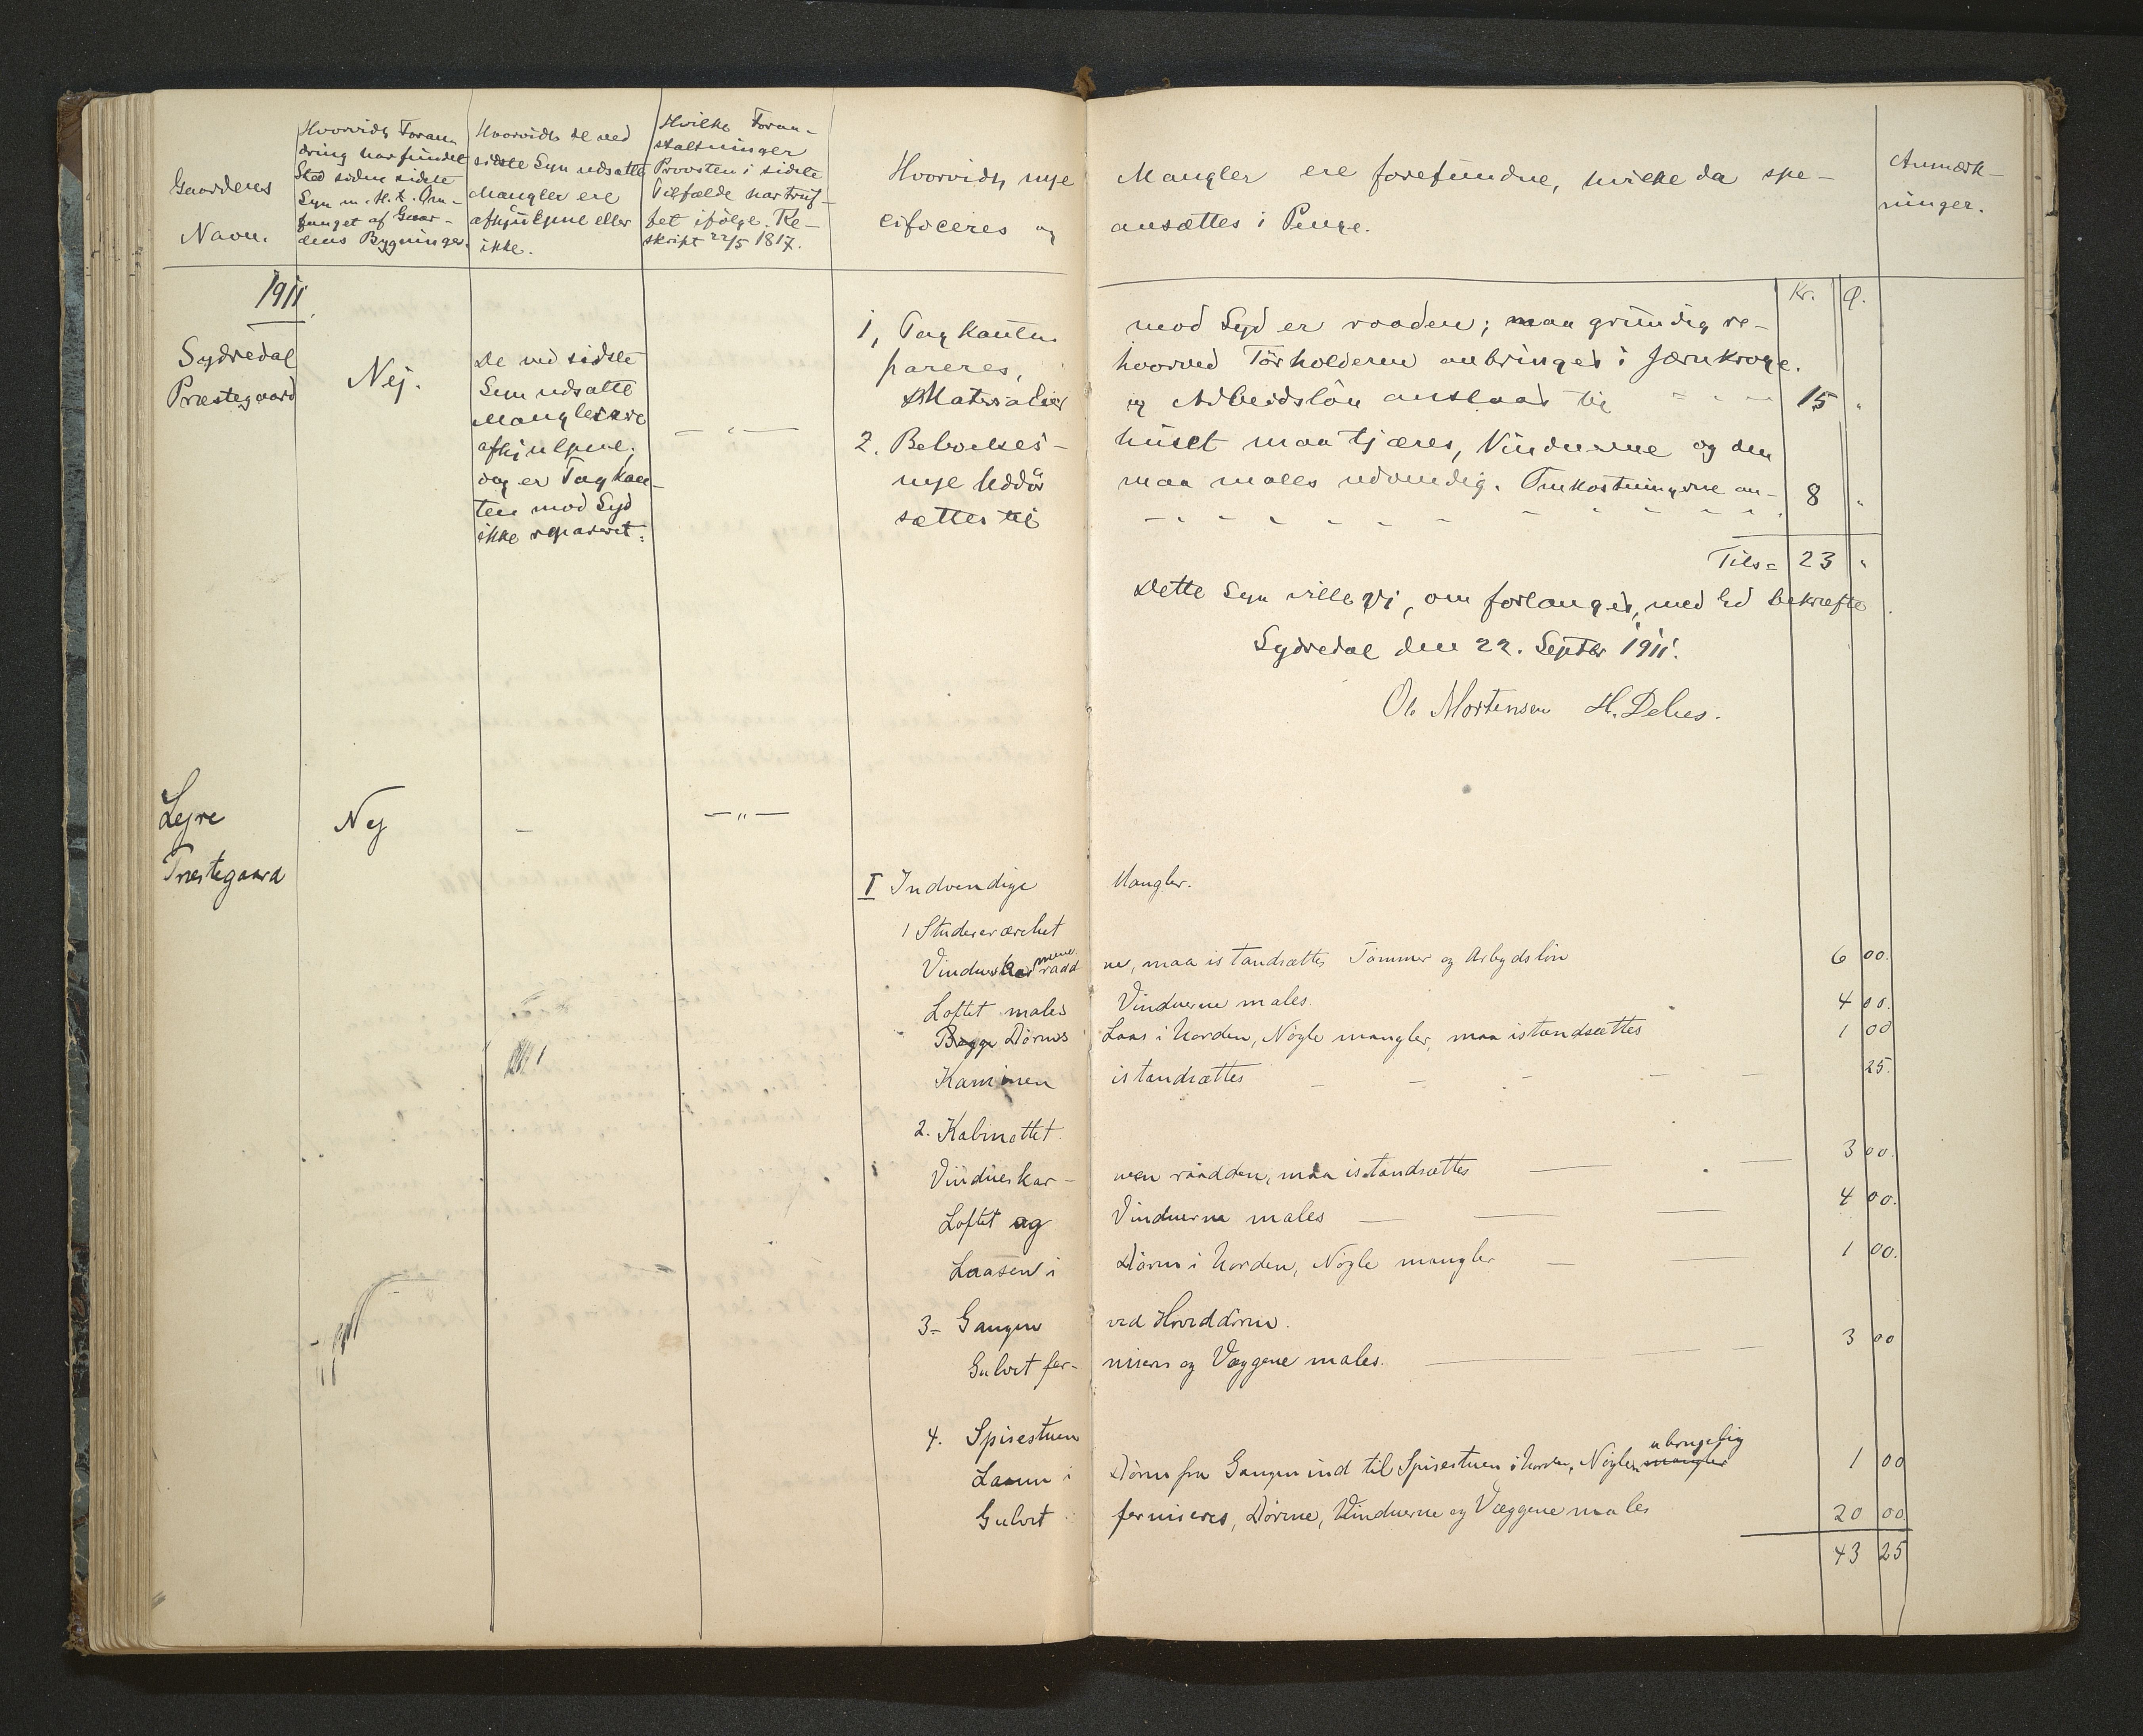 Gaardenes
Navn.
Hvorvidt Foran-
dring har fundet
Sted siden sidste
Syn m. H. t. Om-
fanget af Gaar-
dens Bygninger.
Hvorvidt de ved
sidste Syn udsatte
Mangler ere
afhjulpne eller
ikke.
Hvilke Foran-
staltninger
Provsten i sidste
Tilfælde har truf-
fet ifølge Re-
skript 22/5 1817.
Hvorvidt nye Mangler ere forefundne, hvilke da spe-
cificeres og ansættes i Penge.
Anmærk-
ninger.
Kr. Ø.
1911.
Sydredal
Præstegaard
Nej.
De ved sidste
Syn udsatte
Mangler ere
afhjulpne;
dog er Tagkan-
ten mod Syd
ikke repareret.
— „ —
1, Tagkanten mod Syd er raaden; maa grundig re-
pareres, hvorved Törholderen anbringes i Jærnkroge.
Materialier og Arbeidslön anslaaes til - - - 15 "
2. Beboelses- huset maa tjæres, Vinduerne og den
nye Uddör maa males udvendig. Omkostningerne an-
sættes til - - - - - - - - - - 8 "
Tils= 23 "
Dette Syn ville vi, om forlanges, med Ed bekræfte.
Sydredal den 22. Septbr 1911.
Ol. Mortensen H. Debes.
Lejre
Præstegaard
Nej
—
— „ —
I Indvendige Mangler.
1 Studereværelset
Vindueskarmene raadd ne, maa istandsættes Tömmer og Arbejdslön 6 00.
Loftet males Vinduerne males. 4 00.
Begge Dörrnes Laas i Uorden, Nögle mangler, maa istandsættes 1 00
Kaminen istandsættes - - - - - 25.
2. Kabinettet
Vindueskar- men raadden, maa istandsættes — — 3 00.
Loftet og Vinduerne males — — — 4 00.
Laasen i Dörrn i Uorden, Nögle mangler — — 1 00.
3= Gangen ved Hoveddörrn.
Gulvet fer- niseres og Væggene males. — — 3 00
4. Spisestuen
Laasen i Dörrn fra Gangen ind til Spisestuen i Uorden, Nöglen mangler ubrugelig 1 00
Gulvet ferniseres, Dörrne, Vinduerne og Væggene males 20 00
43 25